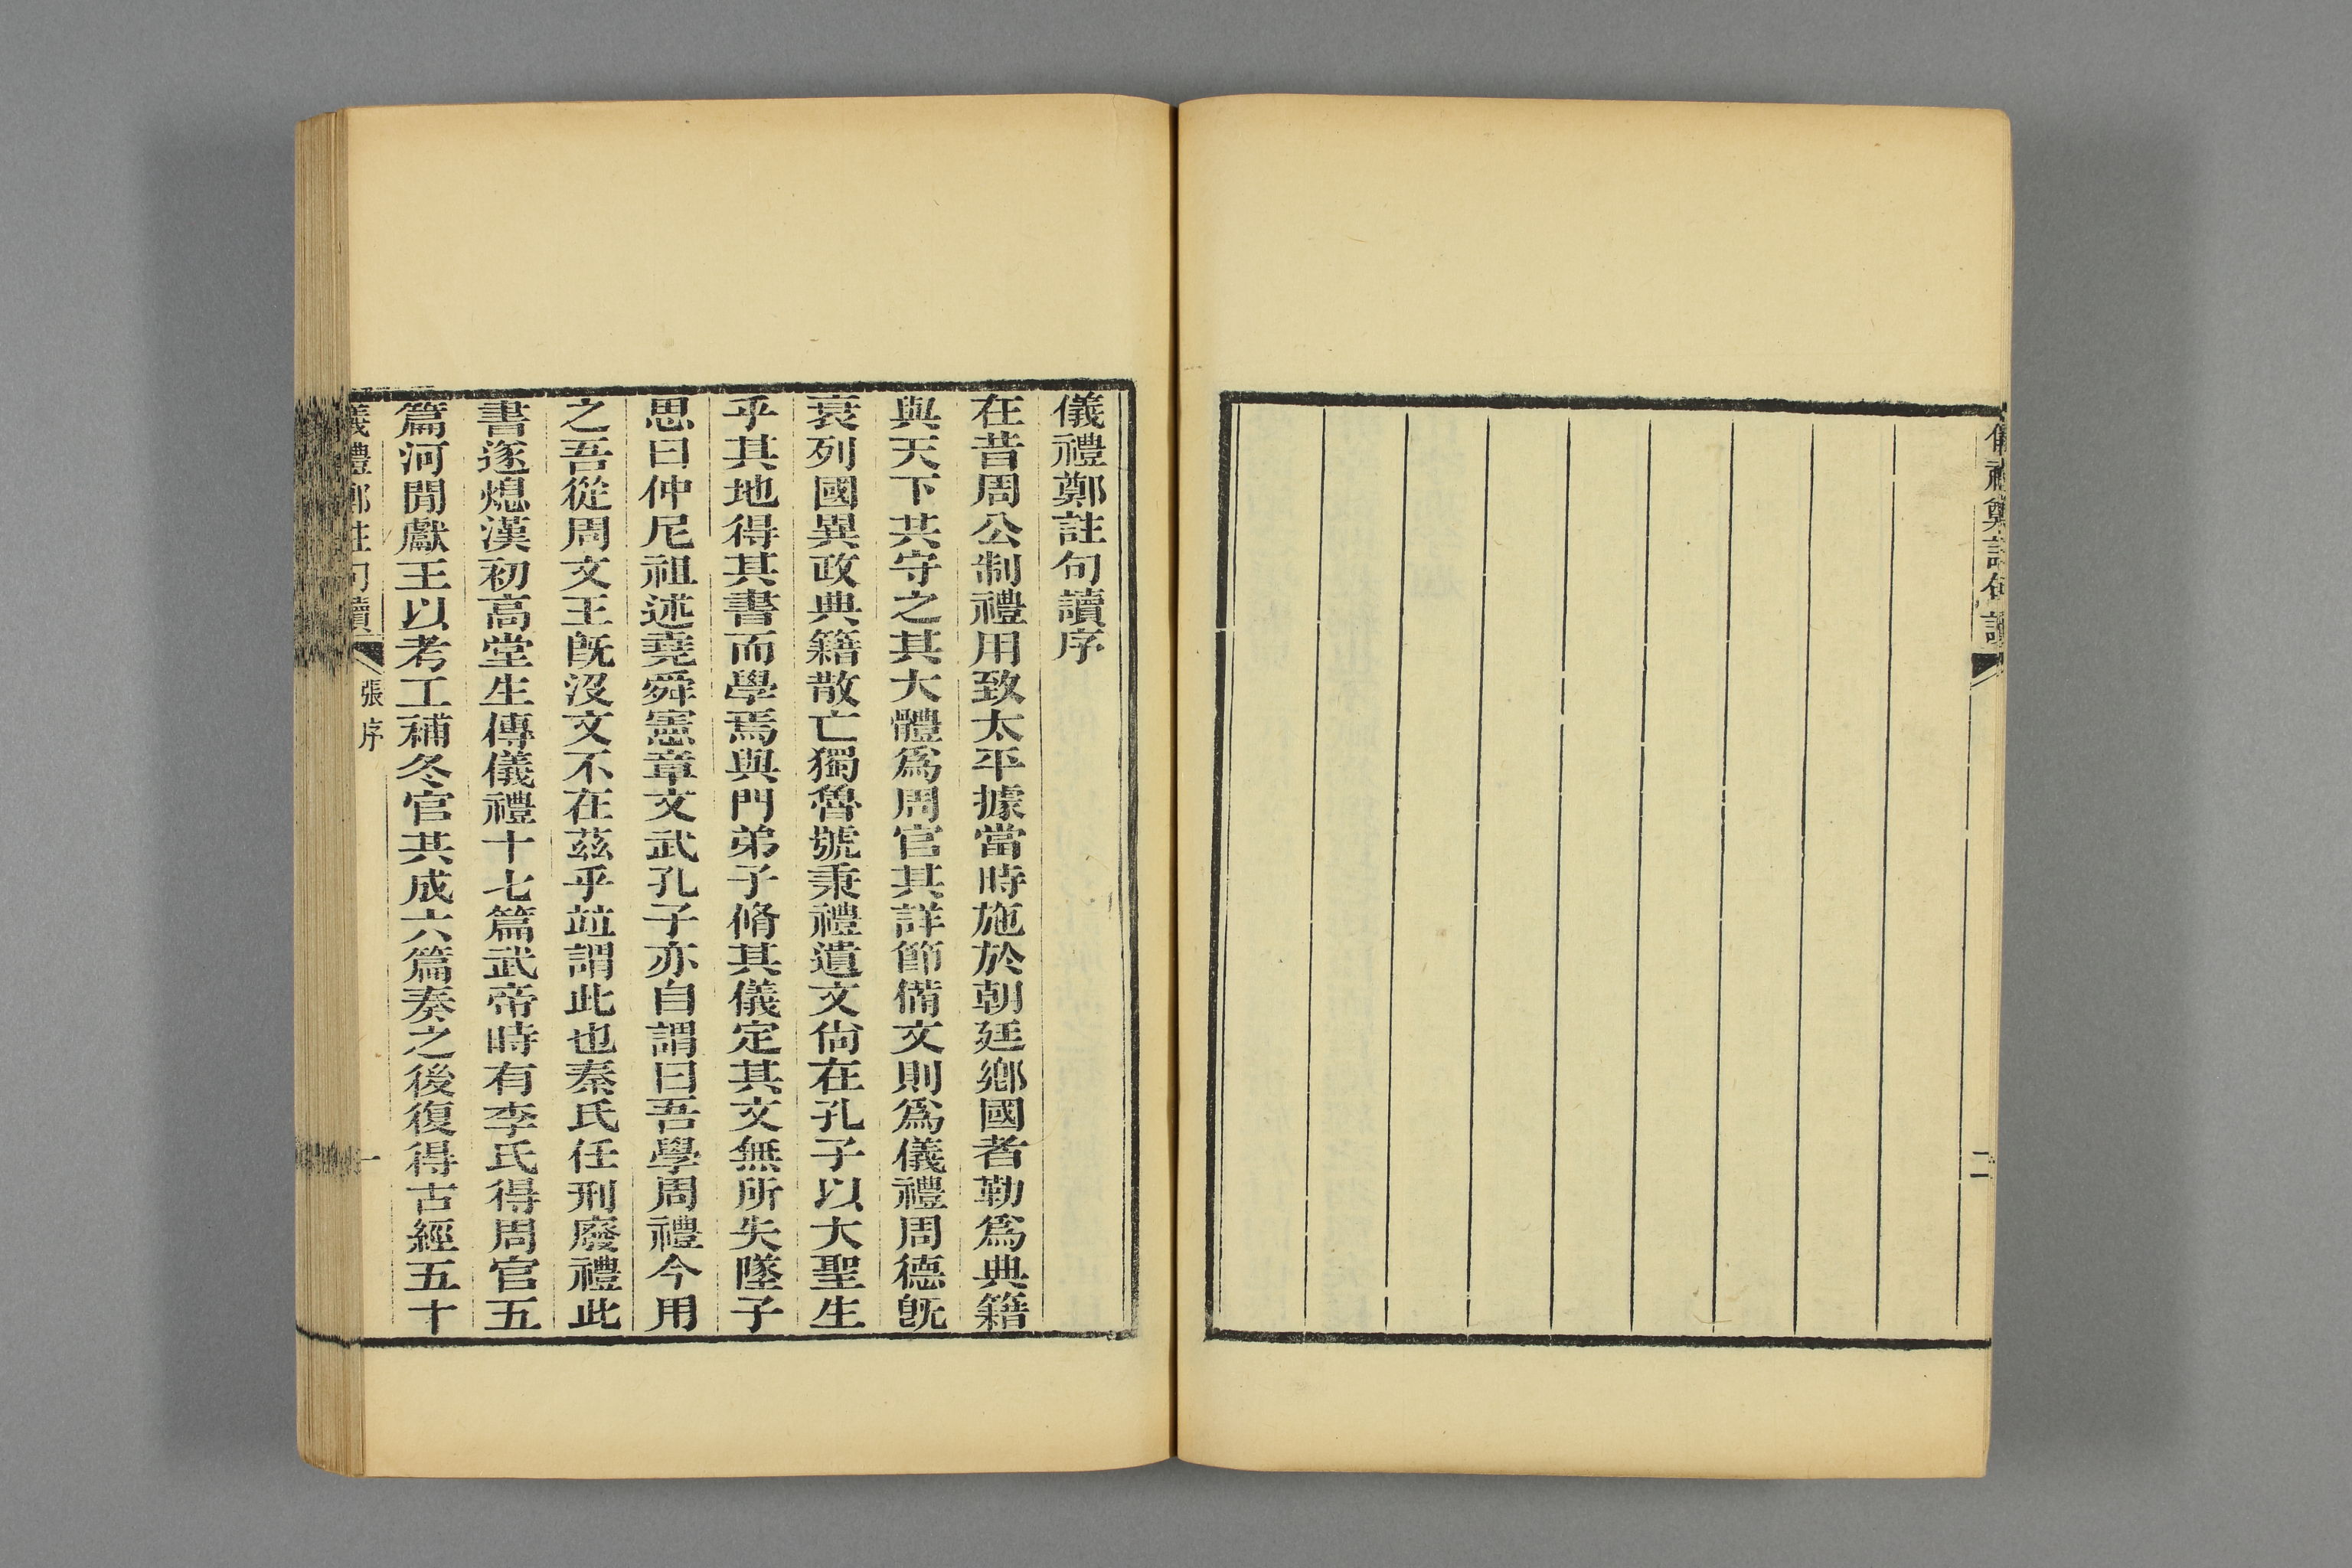 儀禮鄭註句讀
二
儀禮鄭註句讀序
在昔周公制禮用致太平據當時施於朝廷鄉國者勒爲典籍
與天下共守之其大體爲周官其詳節備文則爲儀禮周德旣
衰列國異政典籍散亡獨魯號秉禮遺文尙在孔子以大聖生
乎其地得其書而學焉與門弟子脩其儀定其文無所失墜子
思曰仲尼祖述堯舜憲章文武孔子亦自謂曰吾學周禮今用
之吾從周文王旣沒文不在茲乎竝謂此也秦氏任刑廢禮此
書遂熄漢初高堂生傳儀禮十七篇武帝時有李氏得周官五
篇河閒獻王以考工補冬官共成六篇奏之後復得古經五十
儀禮鄭註句讀
張序
一